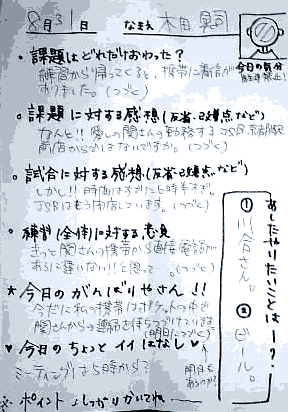 8月31日 なまえ 木田 真司
今日の気分
。課題はどれだけおわった？
練習から帰ってくると、携帯に着信が
ありました。(つづく)
。課題に対する感想(反省・改善点など)
なんと!! 愛しの関さんの勤務するJSB京都駅
商店からではないですか。(つづく)
。試合に対する感想(反省・改善点など)
しかし!! 時間はすでに6時半すぎ。
JSBはもう閉店しています。(つづく)
。練習(全体)に対する意見
きっと関さんの携帯から直接電話が
あるに違いない!!と思って…。(つづく)
★今日のがんばりやさん!!
今だに私の携帯はポケットの中で
関さんからの連絡を待ちつづけています。
(明日につづく)
♥今日のちょっとイイはなし♥
ミーティングは5時から？
明日も
あるのか？
※ポイントしっかりかいてね
あしたやりたいことはー？
①川合さん。
②ビール。